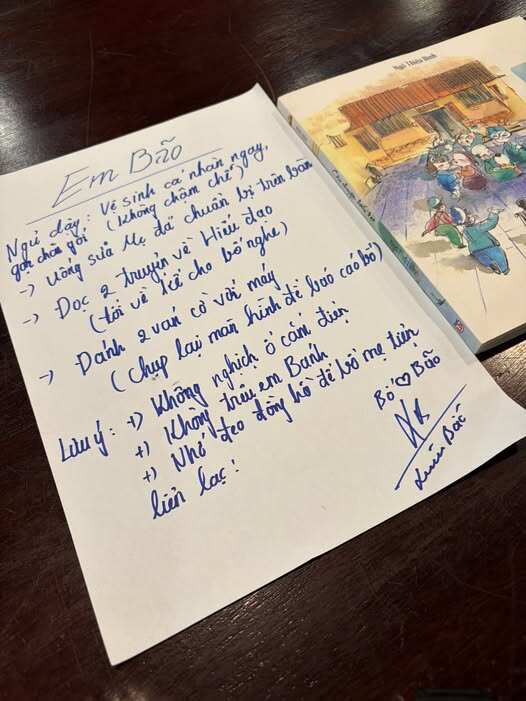 Em Bão
Ngủ dậy: Vệ sinh cá nhân ngay,
gọn chăn gối (không chậm chễ)
→ uống sữa Mẹ đã chuẩn bị trên bàn
→ Đọc 2 truyện về Hiếu đạo
(tối về kể cho bố nghe)
→ Đánh 2 ván cờ với máy
(chụp lại màn hình để báo cáo bố)
Lưu ý: +) Không nghịch ổ cắm điện
+) Không trêu em Banh
+) Nhớ đeo đồng hồ để bố mẹ tiện
liên lạc!
Bố ♡ Bão